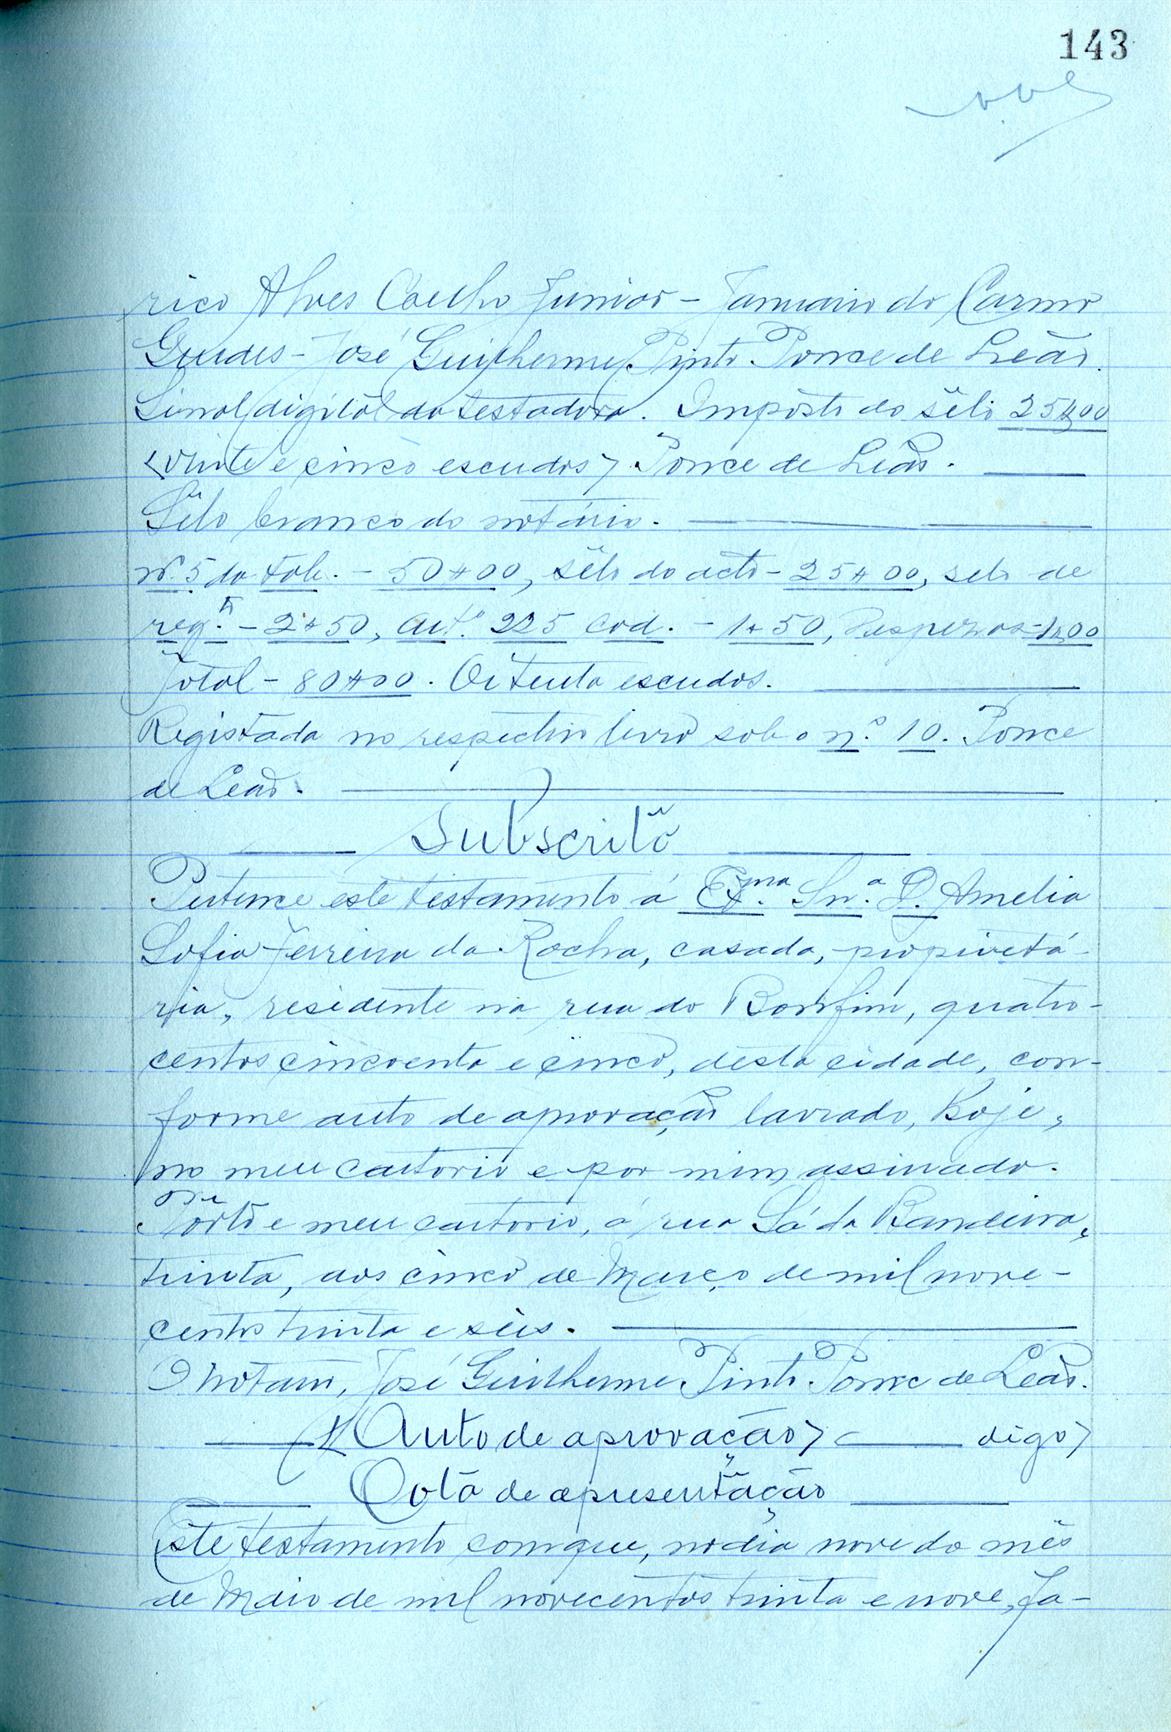 143
rico Alves Coelho Junior - Januario do Carmo
Guedes - José Guilherme Pinto Ponce de Leão.
Sinal digital da testadora. Impôsto do sêlo 25$00
(vinte e cinco escudos) Ponce de Leão.
Sêlo branco do notário.
Nº 5 da tab. - 50$00, sêlo do acto - 25$00, selo de
reg.º - 2$50, art.º 225 Cod. - 1$50, Despezas - 1$00
Total - 80$00. Oitenta escudos.
Registada no respectivo livro sob o n.º 10. Ponce
de Leão.
Subscrito
Pertence êste testamento á Ex.ma Snr.a D. Amelia
Sofia Ferreira da Rocha, casada, propietá-
ria, residente na rua do Bomfim, quatro-
centos cincoenta e cinco, desta cidade, con-
forme auto de aprovação lavrado, hoje,
no meu cartorio e por mim assinado.
Porto e meu cartorio, á rua Sá da Bandeira,
trinta, aos cinco de Março de mil nove-
centos trinta e seis.
O notario, José Guilherme Pinto Ponce de Leão.
(Auto de aprovação) digo)
Cota de apresentação
Este testamento com que, no dia nove do mês
de Maio de mil novecentos trinta e nove, fa-